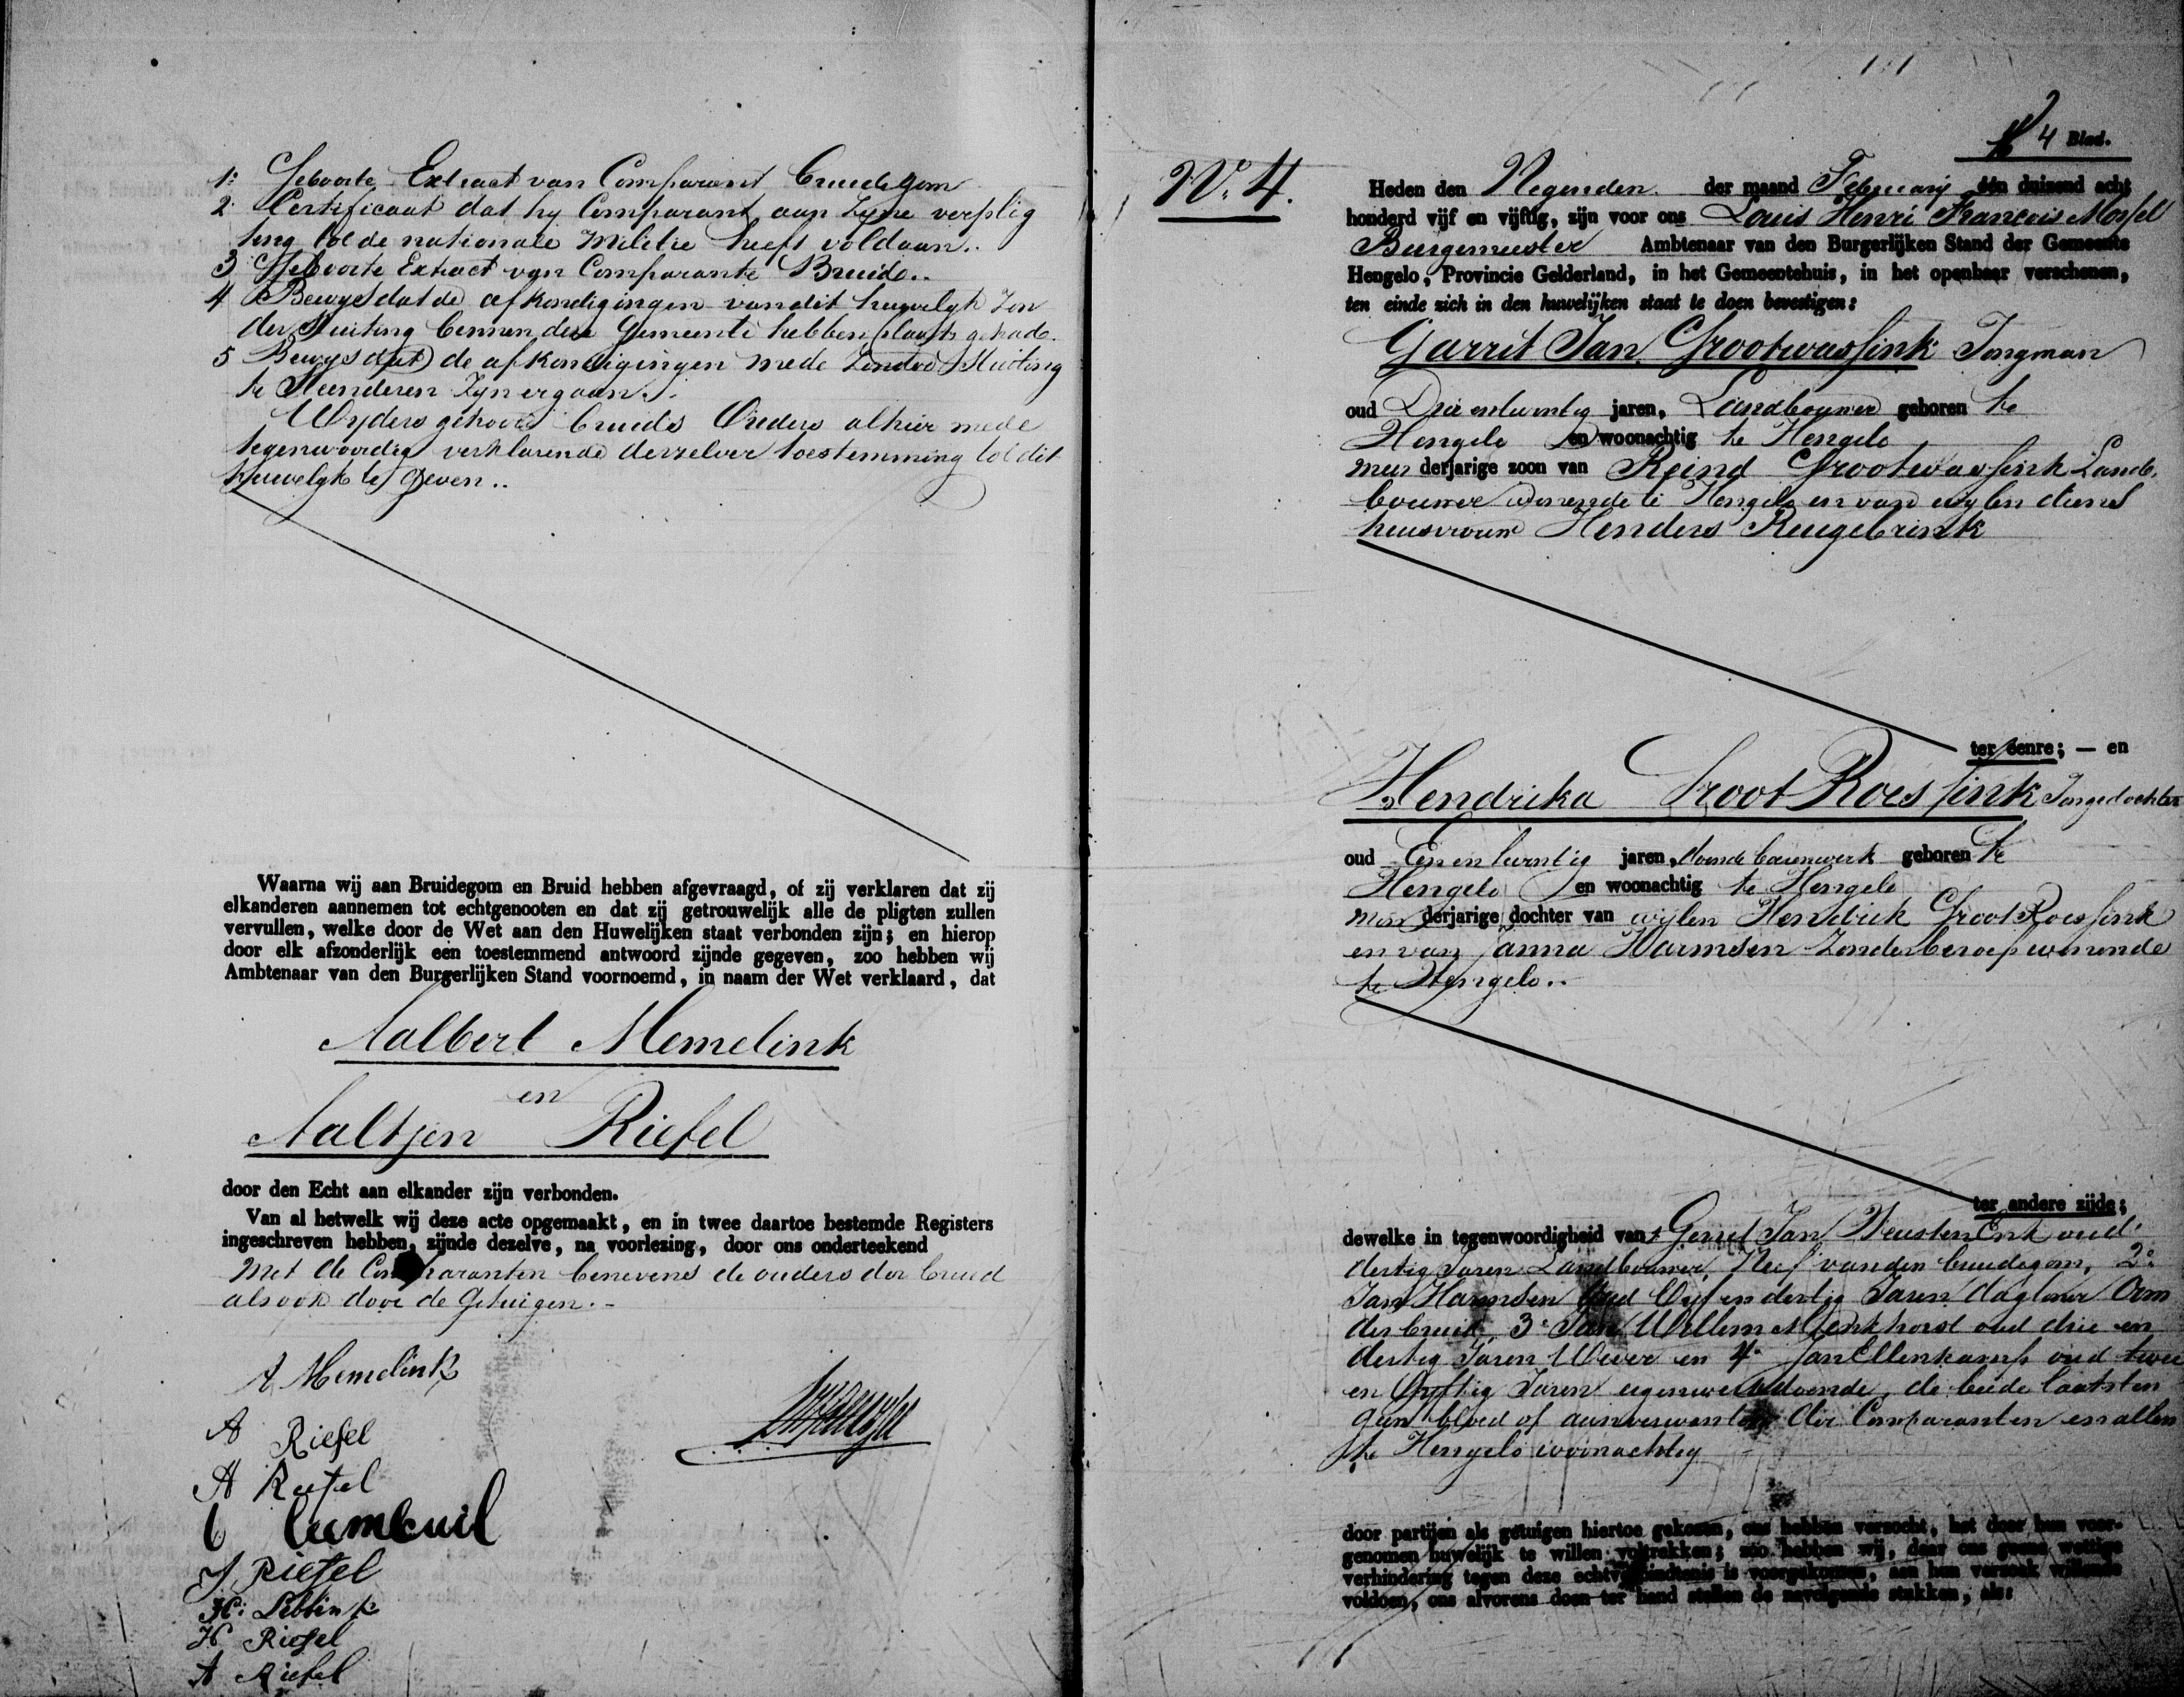 1: Geboorte Extract van Comparant Bruidegom
2: Certificaat dat hy Comparant aan Zyne verplig
ting tot de nationale Militie heeft voldaan..
3 Geboorte Extract van Comparante Bruid..
4 Bewys dat de afkondigingen van dit huwelyk Zon
der Stuiting binnen deze Gemeente hebben plaats gehad.
5 Bewys dat de afkondigingen mede Zonder Stuiting
te Steenderen Zyn ergaan..
Wyders gehoord bruids Ouders alhier mede
tegenwoordig verklarende derzelver toestemming tot dit
huwelyk te geven..
Waarna wij aan Bruidegom en Bruid hebben afgevraagd, of zij verklaren dat zij
elkanderen aannemen tot echtgenooten en dat zij getrouwelijk alle de pligten zullen
vervullen, welke door de Wet aan den Huwelijken staat verbonden zijn; en hierop
door elk afzonderlijk een toestemmend antwoord zijnde gegeven, zoo hebben wij
Ambtenaar van den Burgerlijken Stand voornoemd, in naam der Wet verklaard, dat
Aalbert Memelink
en
Aaltjen Riefel
door den Echt aan elkander zijn verbonden.
Van al hetwelk wij deze acte opgemaakt, en in twee daartoe bestemde Registers
ingeschreven hebben, zijnde dezelve, na voorlezing, door ons onderteekend
Met de Comparanten benevens de ouders der bruid
alsook door de Getuigen.-
A Memelink
A Riefel
A Riefel
J Riefel
H: Lebbink
H Riefel
A Riefel
4 Blad.
No. 4.
Heden den Negenden der maand February één duizend acht
honderd vijf en vijftig, zijn voor ons Louis Henri Francois Mossel
Burgemeester Ambtenaar van den Burgerlijken Stand der Gemeente
Hengelo, Provincie Gelderland, in het Gemeentehuis, in het openbaar verschenen,
ten einde zich in den huwelijken staat te doen bevestigen:
Garrit Jan Grootwassink Jongman
oud Drie entwintig jaren, Landbouwer geboren te
Hengelo en woonachtig te Hengelo
meerderjarige zoon van Reind Grootwassink Land
bouwer wonende te Hengelo en van wylen diens
huisvrouw Henders Reugebrink
ter eenre; — en
Hendrika Groot Roessink Jongedochter
oud Een en twintig jaren, doende bouwwerk geboren te
Hengelo en woonachtig te Hengelo
minderjarige dochter van wijlen Hendrik Groot Roessink
en van Janna Harmsen Zonder beroep wonende
te Hengelo..
ter andere zijde;
dewelke in tegenwoordigheid van Gerrit Jan Weustenenk oud
dertig Jaren Landbouwer, Neef van den bruidegom, 2e
Jan Harmsen Oud Vijf en dertig Jaren daglooner Oom
der bruid, 3e Jan Willem Menkhorst oud drie en
dertig Jaren Wever en 4e Jan Ellenkamp oud twee
en Vyftig Jaren eigenwerk doende, de beide laatsten
geen bloed of aanverwanten der Comparanten en allen
te Hengelo woonachtig
door partijen als getuigen hiertoe gekozen, ons hebben verzocht, het door hun voor-
genomen huwelijk te willen voltrekken; zoo hebben wij, daar ons geene wettige
verhindering tegen deze echtverbindtenis is voorgekomen, aan hun verzoek willende
voldoen, ons alvorens doen ter hand stellen de navolgende stukken, als: